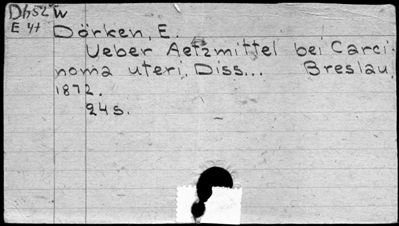 Dh52W
E 41
Dörken, E.
Ueber Aetzmittel bei Carci-
noma uteri. Diss... Breslau,
1872.
24s.